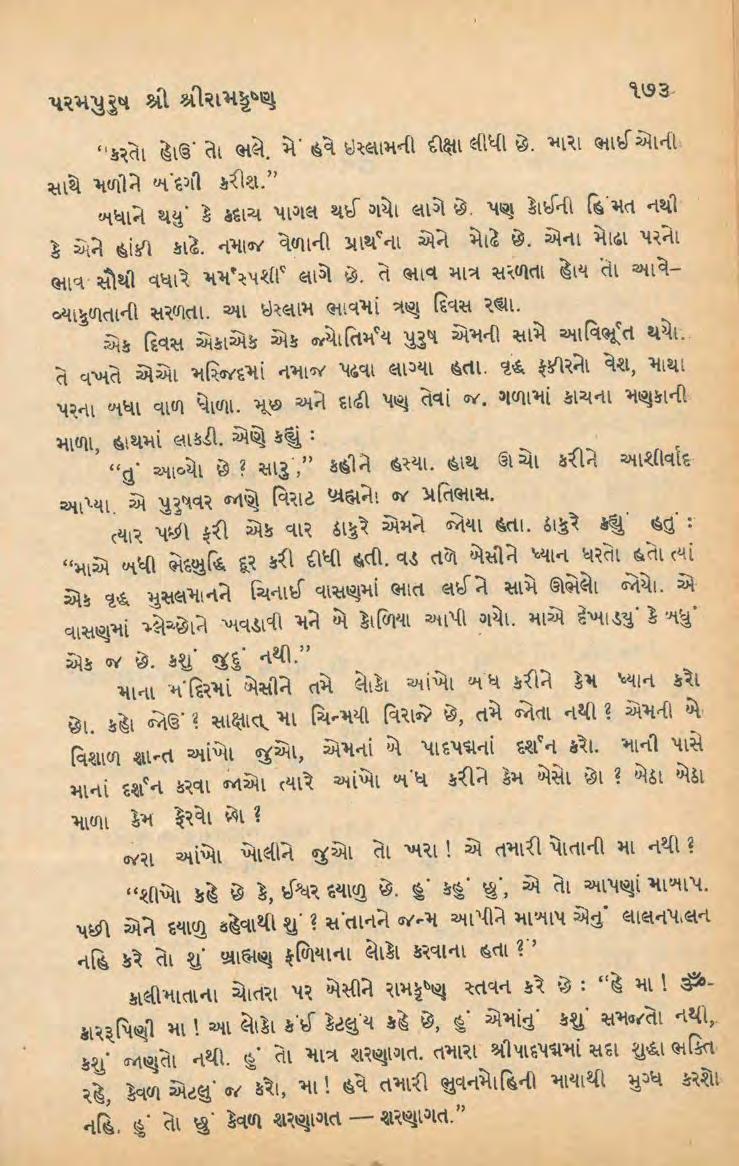 પરમપુરુષ શ્રી શ્રીરામકૃષ્ણ
૧૭૩
“કરતો હોઉં તો ભલે. મેં હવે ઇસ્લામની દીક્ષા લીધી છે. મારા ભાઈઓની
સાથે મળીને બંદગી કરીશ.”
બધાને થયું કે કદાચ પાગલ થઈ ગયો લાગે છે. પણ કોઈની હિંમત નથી
કે એને હાંકી કાઢે. નમાજ વેળાની પ્રાર્થના એને મોઢે છે. એના મોઢા પરનો
ભાવ સૌથી વધારે મર્મસ્પર્શી લાગે છે. તે ભાવ માત્ર સરળતા હોય તો આવે–
વ્યાકુળતાની સરળતા. આ ઇસ્લામ ભાવમાં ત્રણ દિવસ રહ્યા.
એક દિવસ એકાએક એક જ્યોતિર્મય પુરુષ એમની સામે આવિર્ભૂત થયો.
તે વખતે એઓ મસ્જિદમાં નમાજ પઢવા લાગ્યા હતા. વૃદ્ધ ફકીરનો વેશ, માથા
પરના બધા વાળ ધોળા. મૂછ અને દાઢી પણ તેવાં જ. ગળામાં કાચના મણકાની
માળા, હાથમાં લાકડી. એણે કહ્યું :
“તું આવ્યો છે ? સારું,” કહીને હસ્યા. હાથ ઊંચો કરીને આશીર્વાદ
આપ્યા. એ પુરુષવર જાણે વિરાટ બ્રહ્મનો જ પ્રતિભાસ.
ત્યાર પછી ફરી એક વાર ઠાકુરે એમને જોયા હતા. ઠાકુરે કહ્યું હતું :
“માએ બધી ભેદબુદ્ધિ દૂર કરી દીધી હતી. વડ તળે બેસીને ધ્યાન ધરતો હતો ત્યાં
એક વૃદ્ધ મુસલમાનને ચિનાઈ વાસણમાં ભાત લઈને સામે ઊભેલો જોયો. એ
વાસણમાં મ્લેચ્છોને ખવડાવી મને બે કોળિયા આપી ગયો. માએ દેખાડયું કે બધું
એક જ છે. કશું જુદું નથી.”
માના મંદિરમાં બેસીને તમે લોકો આંખો બંધ કરીને કેમ ધ્યાન કરો
છો. કહો જોઉં ? સાક્ષાત્ મા ચિન્મયી વિરાજે છે, તમે જોતા નથી ? એમની બે
વિશાળ શાન્ત આંખો જુઓ, એમનાં બે પાદપદ્મનાં દર્શન કરો. માની પાસે
માનાં દર્શન કરવા જાઓ ત્યારે આંખો બંધ કરીને કેમ બેસો છો ? બેઠા બેઠા
માળા કેમ ફેરવો છો ?
જરા આંખો ખોલીને જુઓ તો ખરા ! એ તમારી પોતાની મા નથી ?
“શીખો કહે છે કે, ઈશ્વર દયાળુ છે. હું કહું છું, એ તો આપણાં માબાપ.
પછી એને દયાળુ કહેવાથી શું ? સંતાનને જન્મ આપીને માબાપ એનું લાલનપાલન
નહિ કરે તો શું બ્રાહ્મણ ફળિયાના લોકો કરવાના હતા ?”
કાલીમાતાના ચોતરા પર બેસીને રામકૃષ્ણ સ્તવન કરે છે : “હે મા ! ૐ-
કારરૂપિણી મા ! આ લોકો કંઈ કેટલુંય કહે છે, હું એમાંનું કશું સમજતો નથી,
કશું જાણતો નથી. હું તો માત્ર શરણાગત. તમારા શ્રીપાદપદ્મમાં સદા શુદ્ધા ભક્તિ
રહે, કેવળ એટલું જ કરો, મા ! હવે તમારી ભુવનમોહિની માયાથી મુગ્ધ કરશો
નહિ. હું તો છું કેવળ શરણાગત — શરણાગત.”